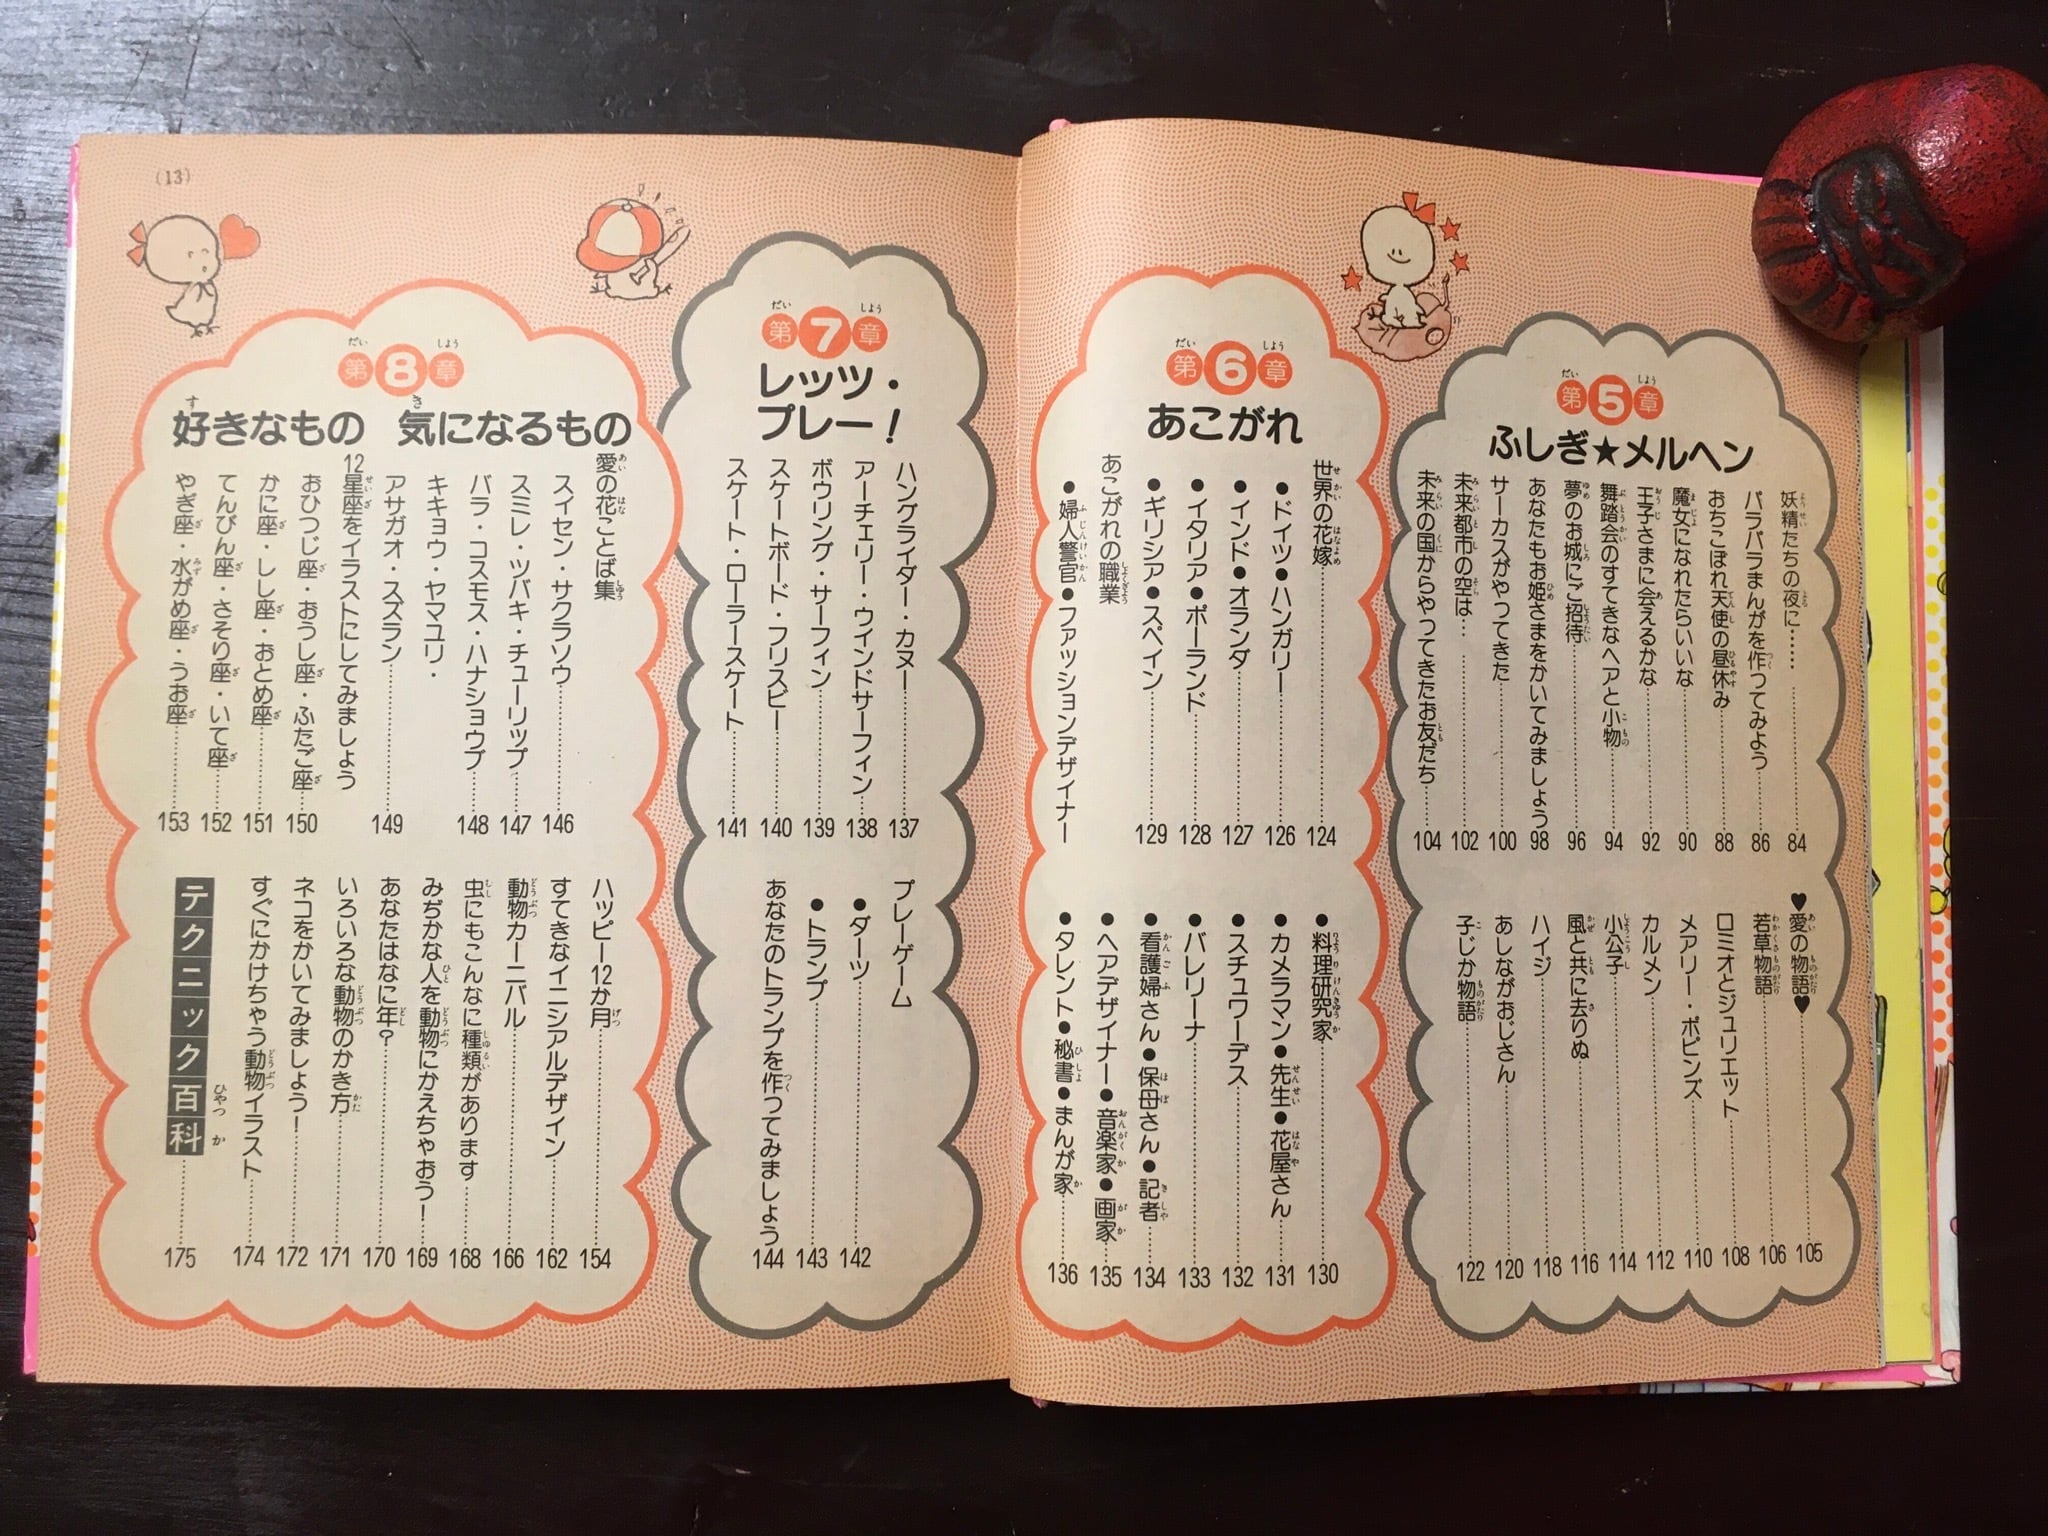 第5章
ふしぎ★メルヘン
妖精たちの夜に……84
パラパラまんがを作ってみよう……86
おちこぼれ天使の昼休み……88
魔女になれたらいいな……90
王子さまに会えるかな……92
舞踏会のすてきなヘアと小物……94
夢のお城にご招待……96
あなたもお姫さまをかいてみましょう98
サーカスがやってきた……100
未来都市の空は………102
未来の国からやってきたお友だち……104
♥愛の物語♥……105
若草物語……106
ロミオとジュリエット……108
メアリー・ポピンズ……110
カルメン……112
小公子……114
風と共に去りぬ……116
ハイジ……118
あしながおじさん……120
子じか物語……122
第6章
あこがれ
世界の花嫁……124
●ドイツ●ハンガリー……126
●インド●オランダ……127
●イタリア●ポーランド……128
●ギリシア●スペイン……129
あこがれの職業
●婦人警官●ファッションデザイナー
●料理研究家……130
●カメラマン●先生●花屋さん……131
●スチュワーデス……132
●バレリーナ……133
●看護婦さん●保母さん●記者……134
●ヘアデザイナー●音楽家●画家……135
●タレント●秘書●まんが家……136
第7章
レッツ・
プレー！
ハングライダー・カヌー……137
アーチェリー・ウインドサーフィン……138
ボウリング・サーフィン……139
スケートボード・フリスビー……140
スケート・ローラースケート……141
プレーゲーム
●ダーツ……142
●トランプ……143
あなたのトランプを作ってみましょう144
第8章
好きなもの　気になるもの
愛の花ことば集
スイセン・サクラソウ……146
スミレ・ツバキ・チューリップ……147
バラ・コスモス・ハナショウブ……148
キキョウ・ヤマユリ・
アサガオ・スズラン……149
12星座をイラストにしてみましょう
おひつじ座・おうし座・ふたご座……150
かに座・しし座・おとめ座……151
てんびん座・さそり座・いて座……152
やぎ座・水がめ座・うお座……153
ハッピー12か月……154
すてきなイニシアルデザイン……162
動物カーニバル……166
虫にもこんなに種類があります……168
みぢかな人を動物にかえちゃおう！……169
あなたはなに年？……170
いろいろな動物のかき方……171
ネコをかいてみましょう！……172
すぐにかけちゃう動物イラスト……174
テクニック百科……175
(13)